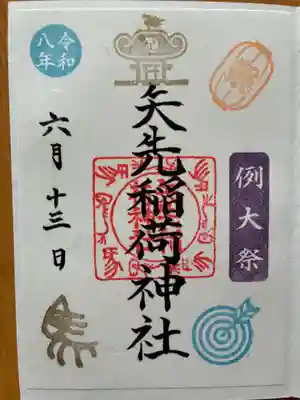 令和
八年
例大祭
矢先稲荷神社
六月十三日